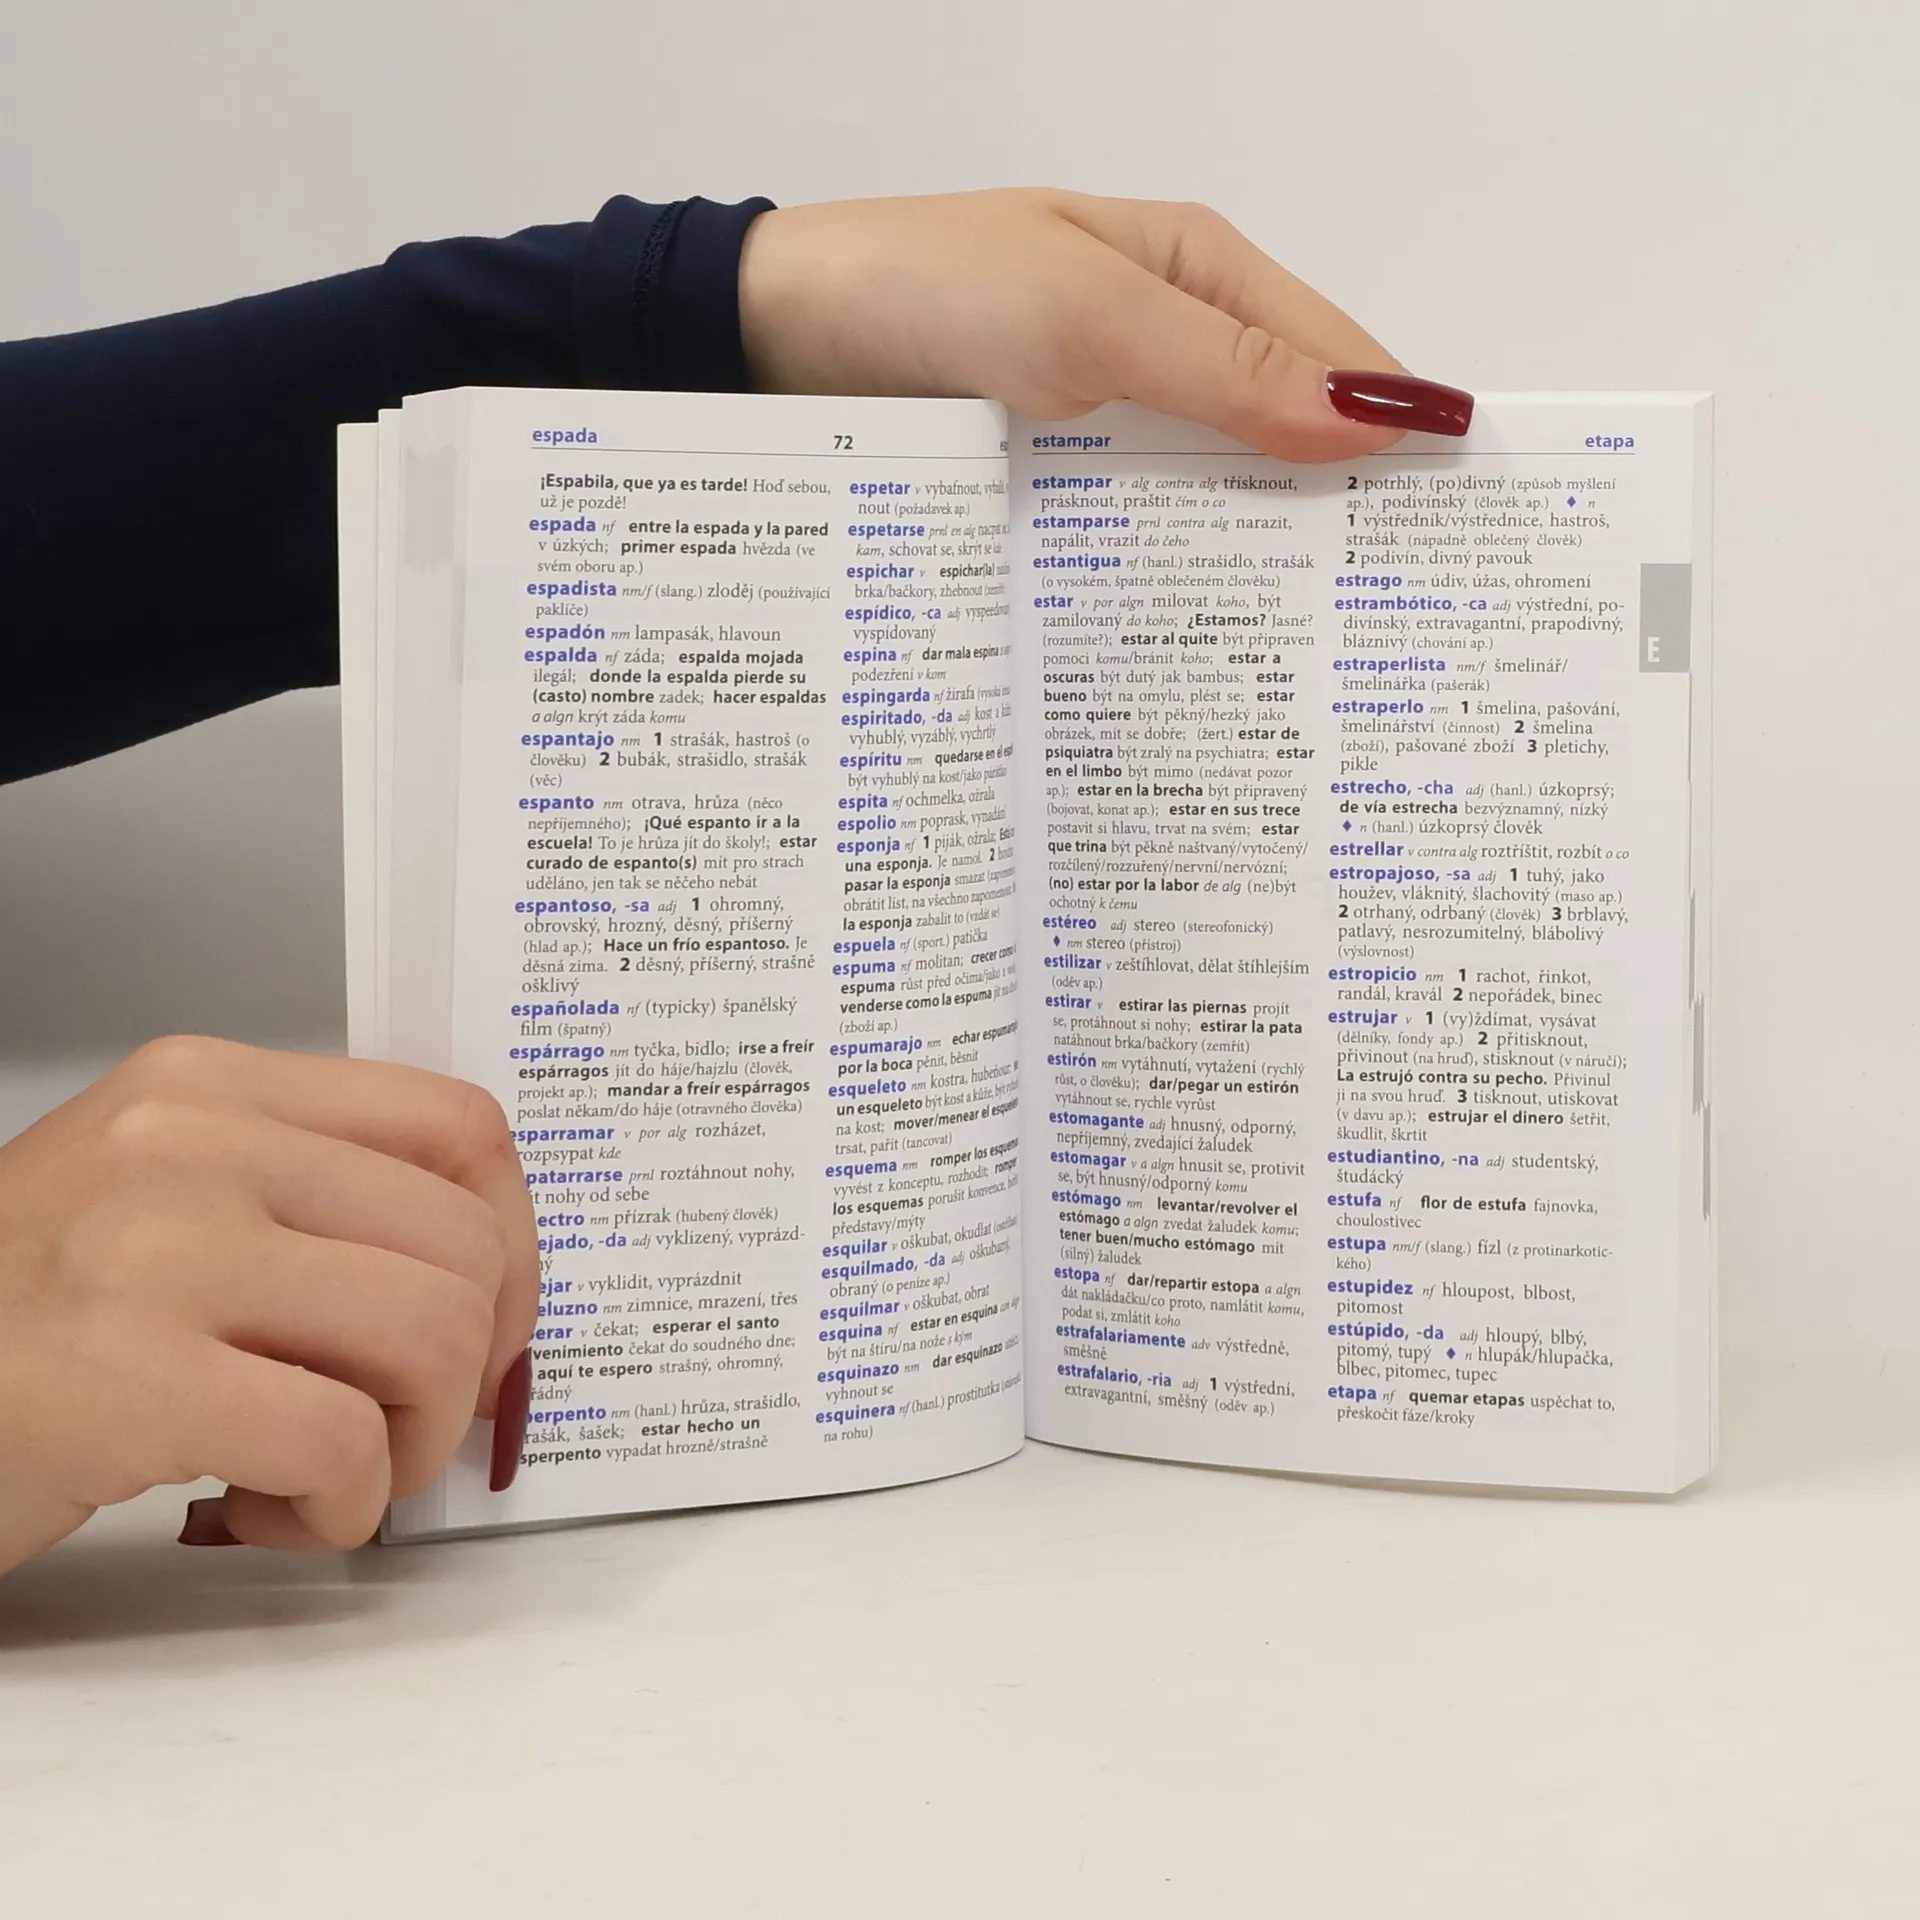 espada
72
¡Espabila, que ya es tarde! Hoď sebou,
už je pozdě!
espada nf entre la espada y la pared
v úzkých; primer espada hvězda (ve
svém oboru ap.)
espadista nm/f (slang.) zloděj (používající
paklíče)
espadón nm lampasák, hlavoun
espalda nf záda; espalda mojada
ilegál; donde la espalda pierde su
(casto) nombre zadek; hacer espaldas
a algn krýt záda komu
espantajo nm 1 strašák, hastroš (o
člověku) 2 bubák, strašidlo, strašák
(věc)
espanto nm otrava, hrůza (něco
nepříjemného); ¡Qué espanto ir a la
escuela! To je hrůza jít do školy!; estar
curado de espanto(s) mít pro strach
uděláno, jen tak se něčeho nebát
espantoso, -sa adj 1 ohromný,
obrovský, hrozný, děsný, příšerný
(hlad ap.); Hace un frío espantoso. Je
děsná zima. 2 děsný, příšerný, strašně
ošklivý
españolada nf (typicky) španělský
film (špatný)
espárrago nm tyčka, bidlo; irse a freír
espárragos jít do háje/hajzlu (člověk,
projekt ap.); mandar a freír espárragos
poslat někam/do háje (otravného člověka)
esparramar v por alg rozházet,
rozpsypat kde
patarrarse prnl roztáhnout nohy,
nohy od sebe
ectro nm přízrak (hubený člověk)
ejado, -da adj vyklizený, vyprázd-
ný
ejar v vyklidit, vyprázdnit
eluzno nm zimnice, mrazení, třes
erar v čekat; esperar el santo
venimiento čekat do soudného dne;
aquí te espero strašný, ohromný,
řádný
perpento nm (hanl.) hrůza, strašidlo,
rašák, šašek; estar hecho un
sperpento vypadat hrozně/strašně
espetar v vybafnout,
nout (požadavek ap.)
espetarse prnl en alg
kam, schovat se, skrýt se
espichar v espichar(la)
brka/bačkory, zhebnout
espídico, -ca adj
vyspídovaný
espina nf dar mala espina
podezření v kom
espingarda nf žirafa
espiritado, -da adj kost a
vyhublý, vyzáblý, vychrtlý
espíritu nm quedarse en el
být vyhublý na kost/jako
espita nf ochmelka, ožrala
espolio nm poprask, vynadání
esponja nf 1 piják, ožrala;
una esponja. Je namol. 2
pasar la esponja smazat
obrátit list, na všechno
la esponja zabalit to (vzdát se)
espuela nf (sport.) patička
espuma nf molitan; crecer como
espuma růst před očima/jako
venderse como la espuma jít na
(zboží ap.)
espumarajo nm echar
por la boca pěnit, běsnit
esqueleto nm kostra, hubeňour;
un esqueleto být kost a kůže, být
na kost; mover/menear el
trsat, pařit (tancovat)
esquema nm romper los
vyvést z konceptu, rozhodit; romper
los esquemas porušit konvence,
představy/mýty
esquilar v oškubat, okudlat
esquilmado, -da adj oškubaný,
obraný (o peníze ap.)
esquilmar v oškubat, obrat
esquina nf estar en esquina con
být na štíru/na nože s kým
esquinazo nm dar esquinazo
vyhnout se
esquinera nf (hanl.) prostitutka
na rohu)
estampar
etapa
estampar v alg contra alg třísknout,
prásknout, praštit čím o co
estamparse prnl contra alg narazit,
napálit, vrazit do čeho
estantigua nf (hanl.) strašidlo, strašák
(o vysokém, špatně oblečeném člověku)
estar v por algn milovat koho, být
zamilovaný do koho; ¿Estamos? Jasné?
(rozumíte?); estar al quite být připraven
pomoci komu/bránit koho; estar a
oscuras být dutý jak bambus; estar
bueno být na omylu, plést se; estar
como quiere být pěkný/hezký jako
obrázek, mít se dobře; (žert.) estar de
psiquiatra být zralý na psychiatra; estar
en el limbo být mimo (nedávat pozor
ap.); estar en la brecha být připravený
(bojovat, konat ap.); estar en sus trece
postavit si hlavu, trvat na svém; estar
que trina být pěkně naštvaný/vytočený/
rozčílený/rozzuřený/nervní/nervózní;
(no) estar por la labor de alg (ne)být
ochotný k čemu
estéreo adj stereo (stereofonický)
♦ nm stereo (přístroj)
estilizar v zeštíhlovat, dělat štíhlejším
(oděv ap.)
estirar v estirar las piernas projít
se, protáhnout si nohy; estirar la pata
natáhnout brka/bačkory (zemřít)
estirón nm vytáhnutí, vytažení (rychlý
růst, o člověku); dar/pegar un estirón
vytáhnout se, rychle vyrůst
estomagante adj hnusný, odporný,
nepříjemný, zvedající žaludek
estomagar v a algn hnusit se, protivit
se, být hnusný/odporný komu
estómago nm levantar/revolver el
estómago a algn zvedat žaludek komu;
tener buen/mucho estómago mít
(silný) žaludek
estopa nf dar/repartir estopa a algn
dát nakládačku/co proto, namlátit komu,
podat si, zmlátit koho
estrafalariamente adv výstředně,
směšně
estrafalario, -ria adj 1 výstřední,
extravagantní, směšný (oděv ap.)
2 potrhlý, (po)divný (způsob myšlení
ap.), podivínský (člověk ap.) ♦ n
1 výstředník/výstřednice, hastroš,
strašák (nápadně oblečený člověk)
2 podivín, divný pavouk
estrago nm údiv, úžas, ohromení
estrambótico, -ca adj výstřední, po-
divínský, extravagantní, prapodivný,
bláznivý (chování ap.)
estraperlista nm/f šmelinář/
šmelinářka (pašerák)
estraperlo nm 1 šmelina, pašování,
šmelinářství (činnost) 2 šmelina
(zboží), pašované zboží 3 pletichy,
pikle
estrecho, -cha adj (hanl.) úzkoprsý;
de vía estrecha bezvýznamný, nízký
♦ n (hanl.) úzkoprsý člověk
estrellar v contra alg roztříštit, rozbít o co
estropajoso, -sa adj 1 tuhý, jako
houžev, vláknitý, šlachovitý (maso ap.)
2 otrhaný, odrbaný (člověk) 3 brblavý,
patlavý, nesrozumitelný, blábolivý
(výslovnost)
estropicio nm 1 rachot, řinkot,
randál, kravál 2 nepořádek, binec
estrujar v 1 (vy)ždímat, vysávat
(dělníky, fondy ap.) 2 přitisknout,
přivinout (na hruď), stisknout (v náručí);
La estrujó contra su pecho. Přivinul
ji na svou hruď. 3 tisknout, utiskovat
(v davu ap.); estrujar el dinero šetřit,
škudlit, škrtit
estudiantino, -na adj studentský,
študácký
estufa nf flor de estufa fajnovka,
choulostivec
estupa nm/f (slang.) fízl (z protinarkotic-
kého)
estupidez nf hloupost, blbost,
pitomost
estúpido, -da adj hloupý, blbý,
pitomý, tupý ♦ n hlupák/hlupačka,
blbec, pitomec, tupec
etapa nf quemar etapas uspěchat to,
přeskočit fáze/kroky
E